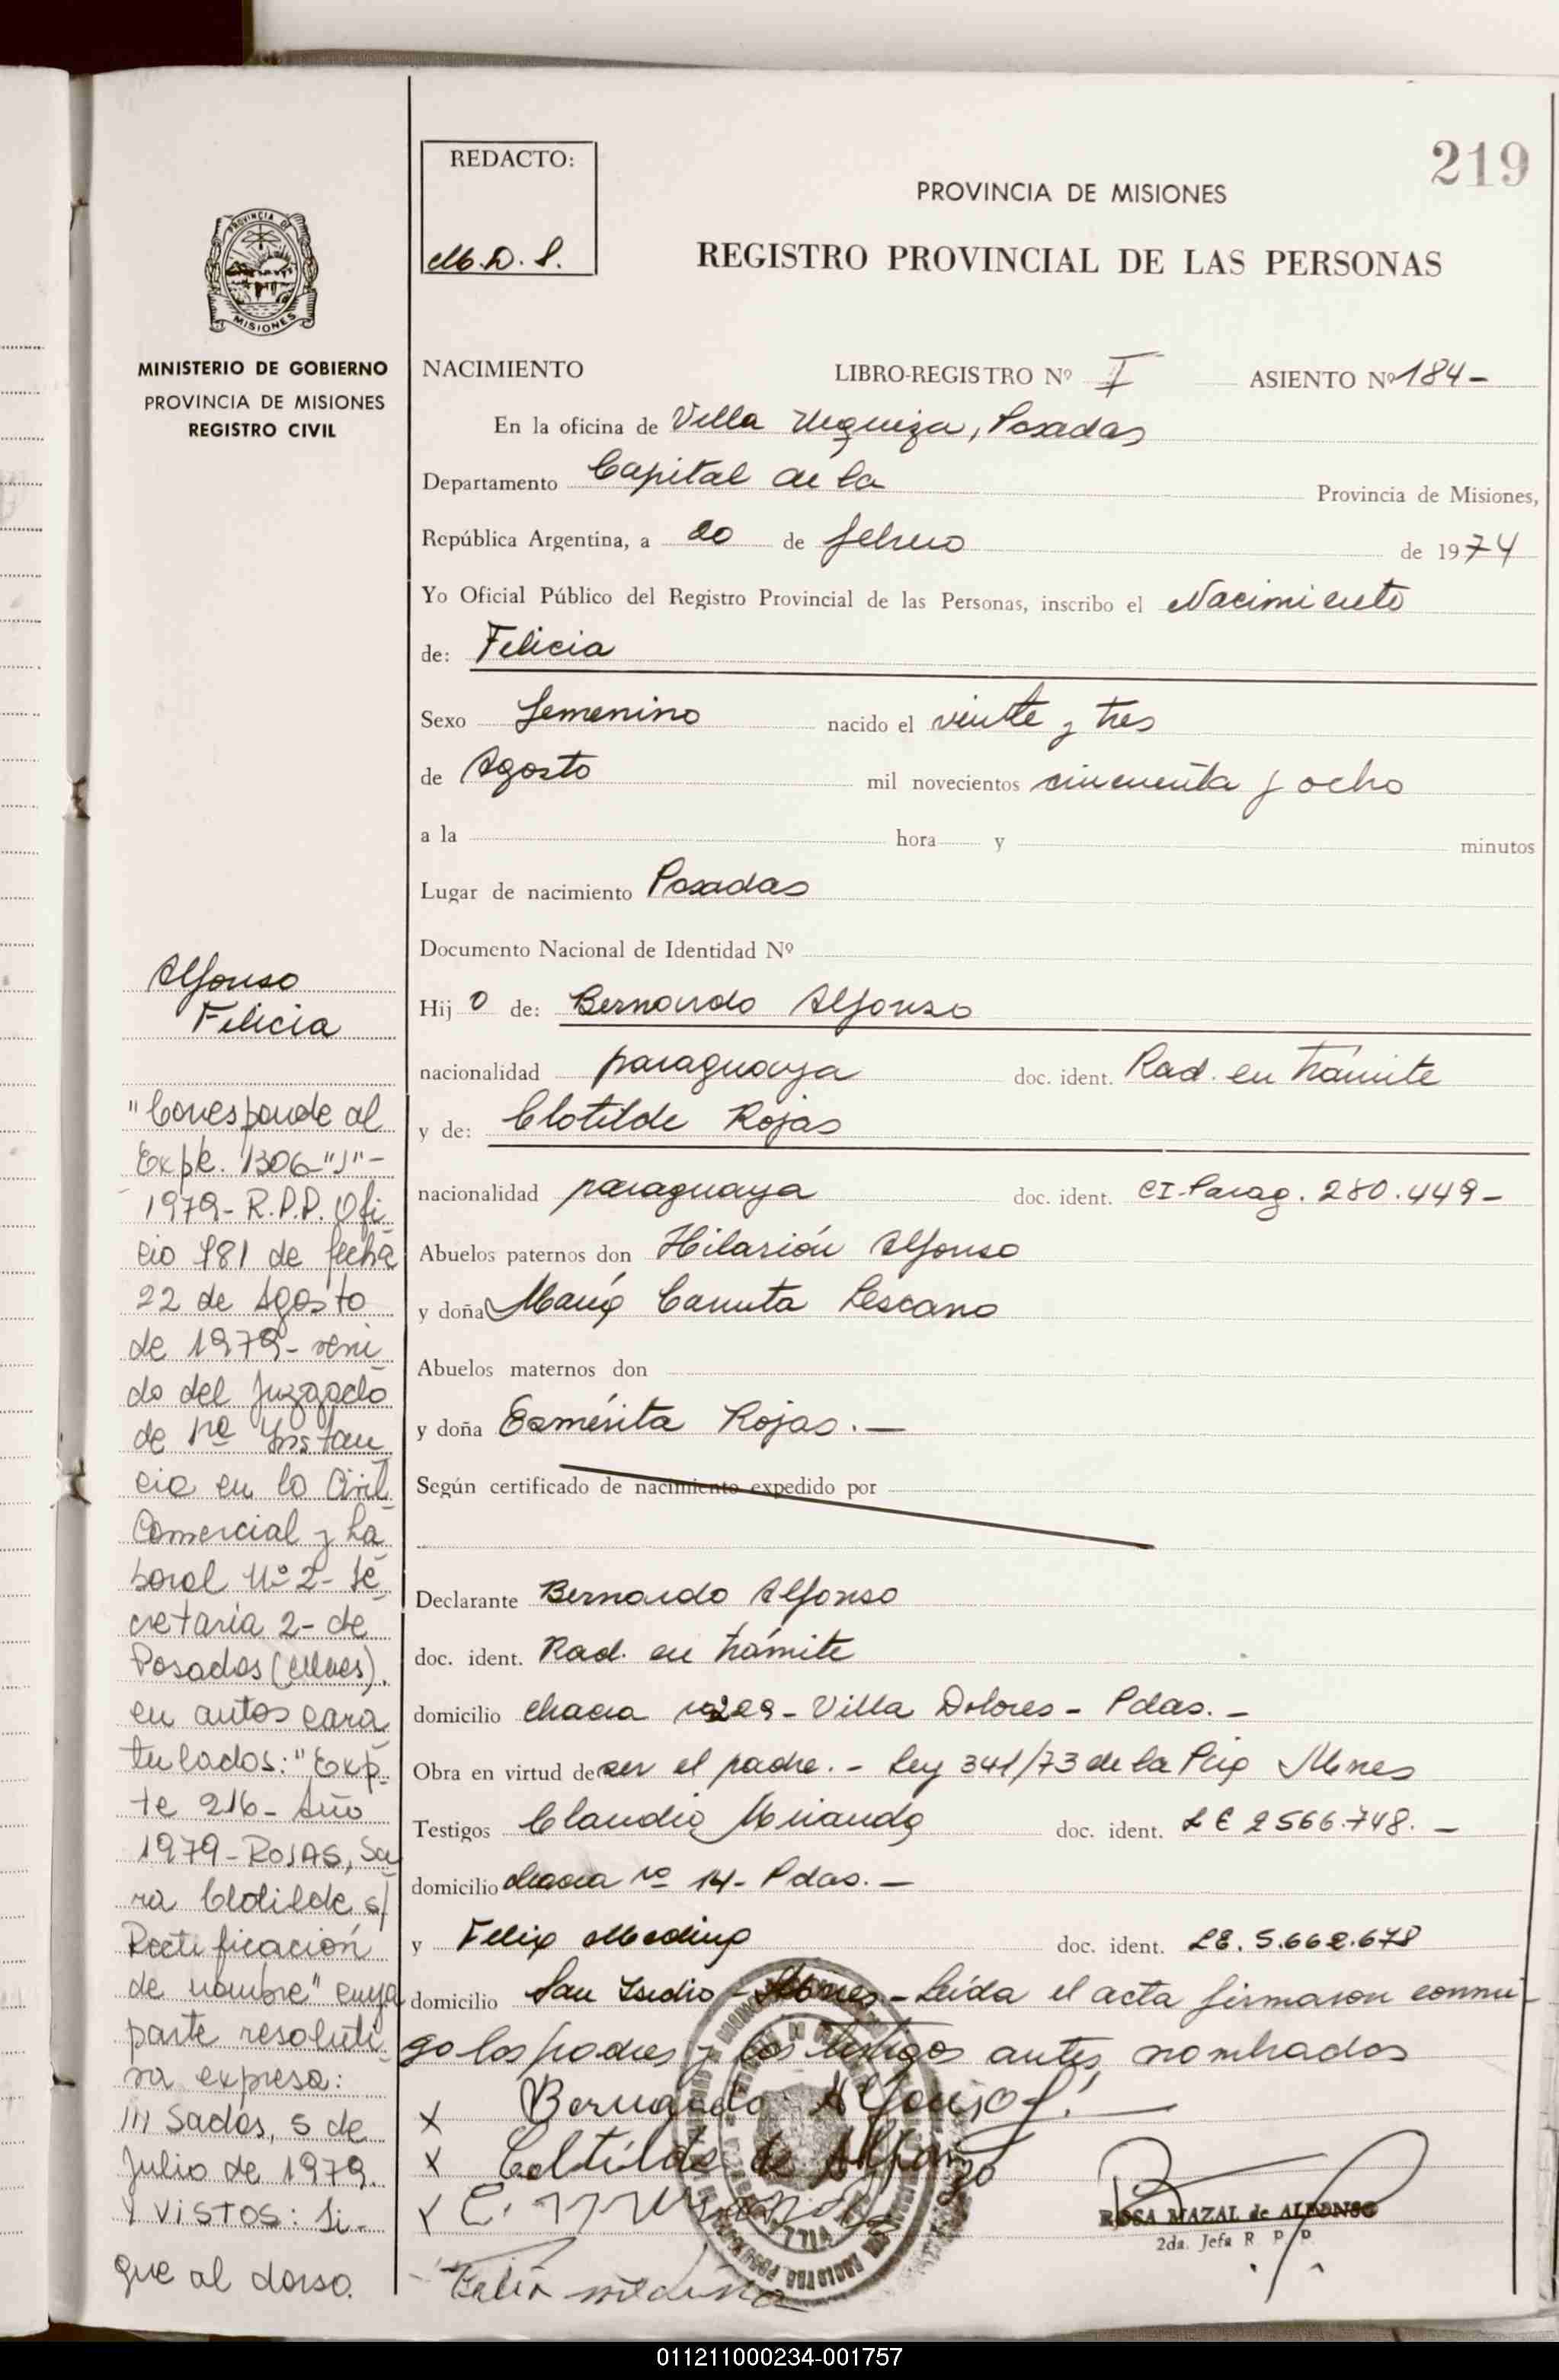 219
REDACTO:
M.D.S.
PROVINCIA DE MISIONES
REGISTRO PROVINCIAL DE LAS PERSONAS
MISIONES
MINISTERIO DE GOBIERNO
PROVINCIA DE MISIONES
REGISTRO CIVIL
NACIMIENTO LIBRO-REGISTRO Nº I ASIENTO Nº 184-
En la oficina de Villa Urquiza, Posadas
Departamento Capital de la Provincia de Misiones,
República Argentina, a 20 de febrero de 1974
Yo Oficial Público del Registro Provincial de las Personas, inscribo el Nacimiento
de: Felicia
Sexo femenino nacido el veinte y tres
de Agosto mil novecientos cincuenta y ocho
a la hora y minutos
Lugar de nacimiento Posadas
Documento Nacional de Identidad Nº
Hij o de: Bernardo Alfonso
nacionalidad paraguaya doc. ident. Rad. en trámite
y de: Clotilde Rojas
nacionalidad paraguaya doc. ident. CI-Parag. 280.449-
Abuelos paternos don Hilarión Alfonso
y doña María Canuta Lescano
Abuelos maternos don
y doña Esmérita Rojas.—
Según certificado de nacimiento expedido por
Declarante Bernardo Alfonso
doc. ident. Rad. en trámite
domicilio chacra - Villa Dolores - Pdas.-
Obra en virtud de ser el padre.- Ley 341/73 de la Mnes
Testigos Claudio Miranda doc. ident. LE 2566.748.-
domicilio chacra nº 14- Pdas.—
y Felix Medina doc. ident. LE. 5.662.678
domicilio San Isidro - Mnes - Leída el acta firmaron conmi-
go los padres y los testigos antes nombrados
X Bernardo Alfonso
X Clotilde de Alfonso
X C. Miranda
Felix medina
ROSA MAZAL de ALFONSO
2da. Jefa R P P
Alfonso
Felicia
"Corresponde al
Expte. 1306 "J"-
1979- R.P.P. Ofi-
cio 981 de fecha
22 de Agosto
de 1979- veni-
do del Juzgado
de 1ra Instan-
cia en lo Civil
Comercial y La-
boral Nº 2- Se-
cretaría 2- de
Posadas (Mnes).
en autos cara-
tulados: "Exp-
te 216- Año
1979- ROJAS, Sa-
ra Clotilde s/
Rectificación
de nombre" cuya
parte resoluti-
va expresa:
/// Sadas, 5 de
Julio de 1979.
Y VISTOS: Si-
gue al dorso.
011211000234-001757